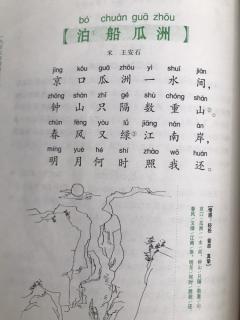 bó chuán guā zhōu
【泊船瓜洲】
宋 王安石
jīng kǒu guā zhōu yì shuǐ jiān
京口瓜洲一水间，
zhōng shān zhǐ gé shù chóng shān
钟山只隔数重山。
chūn fēng yòu lǜ jiāng nán àn
春风又绿江南岸，
míng yuè hé shí zhào wǒ huán
明月何时照我还